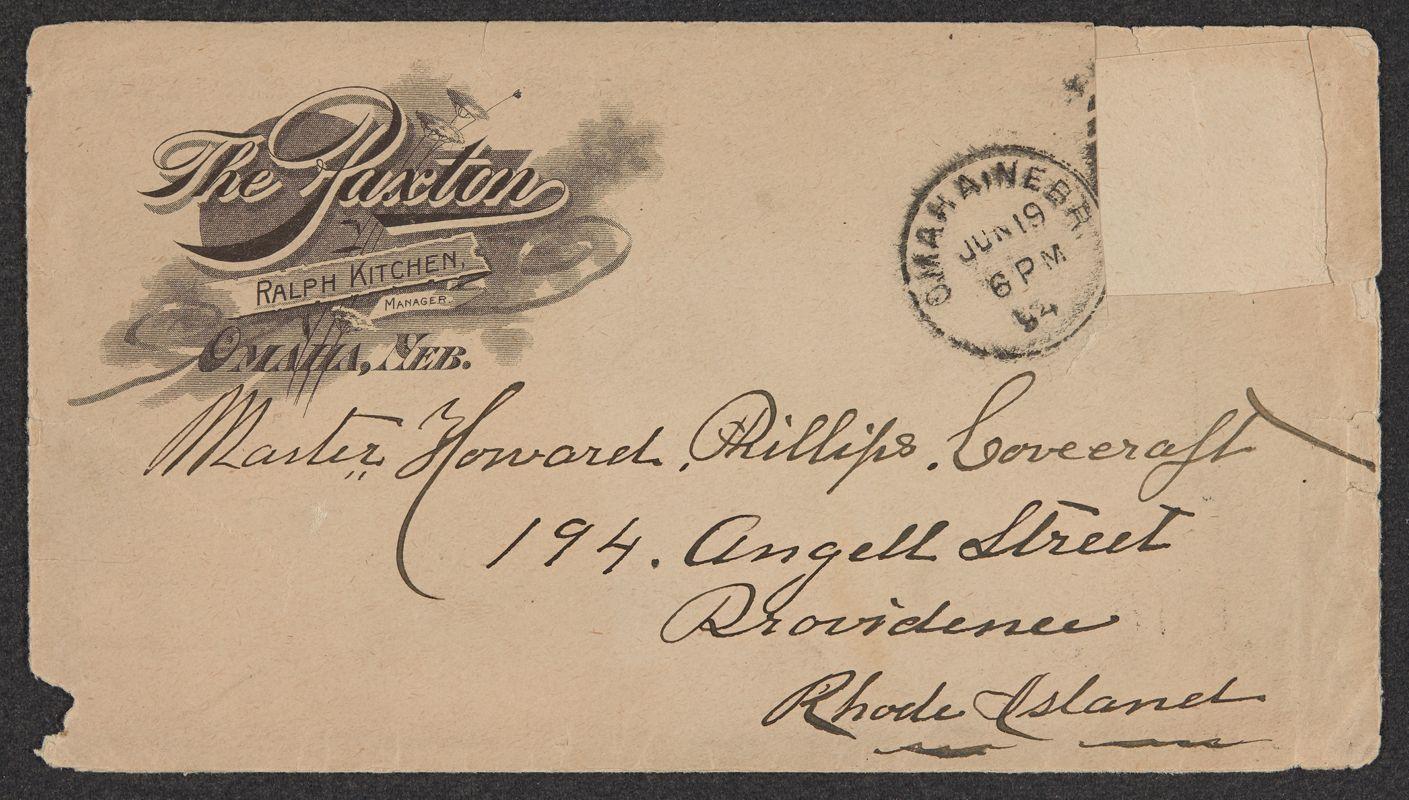 The Paxton
RALPH KITCHEN,
MANAGER.
OMAHA, NEB.
OMAHA, NEBR.
JUN 19
6 PM
94
Master Howard Phillips Lovecraft
194. Angell Street
Providence
Rhode Island